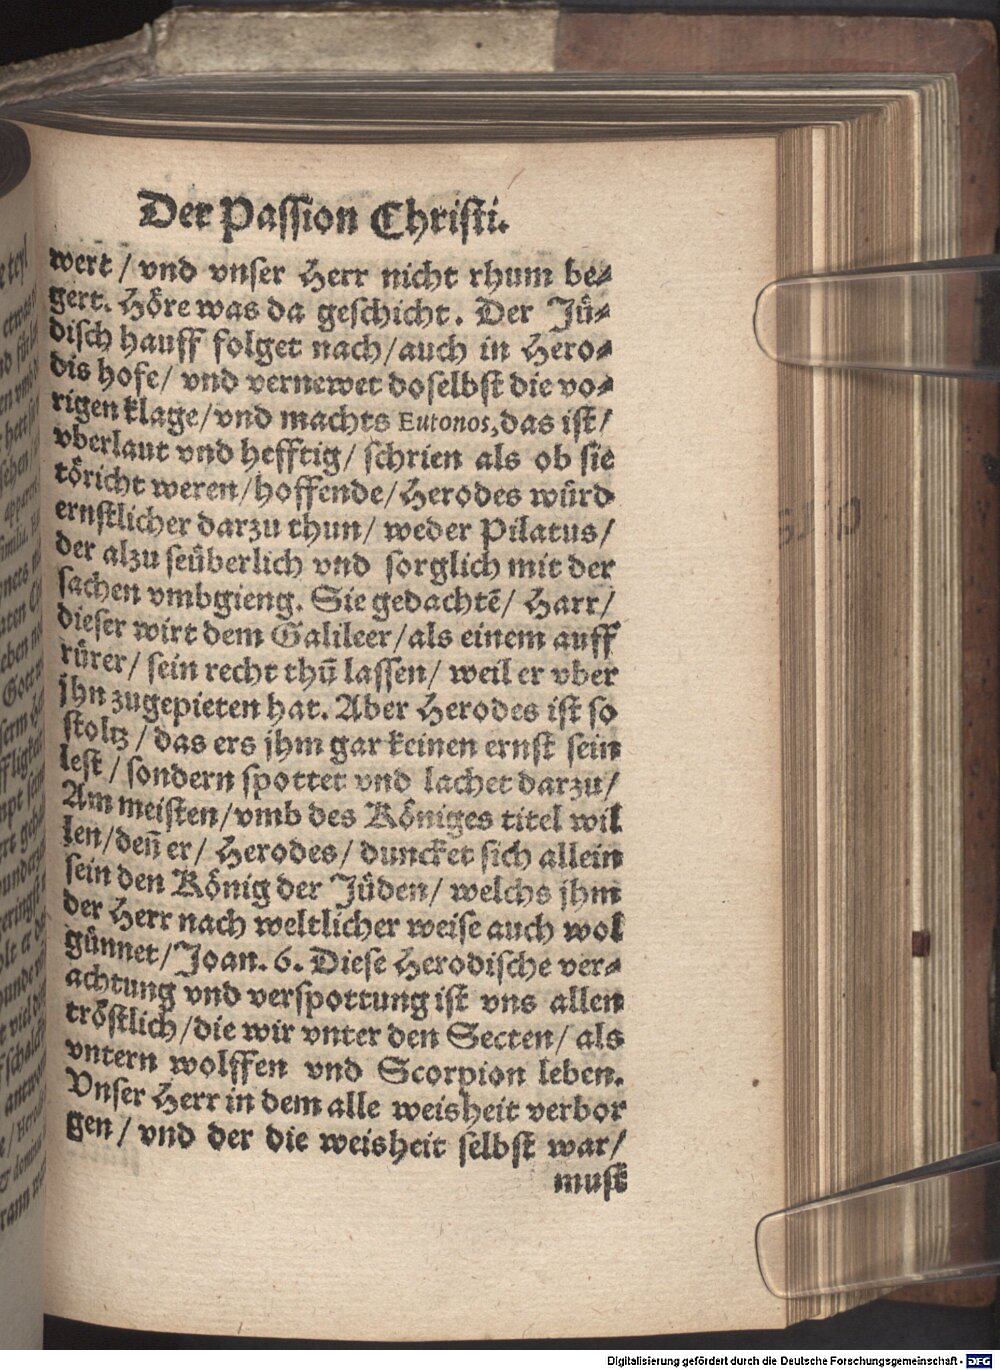 Der Passion Christi.
wert / vnd vnser Herr nicht rhum be⸗
gert. Höre was da geschicht. Der Jü⸗
disch hauff folget nach/auch in Hero⸗
dis hofe/ vnd vernewet doselbst die vo⸗
rigen klage/vnd machts Eutonos,das ist/
vberlaut vnd hefftig/ schrien als ob sie
töricht weren/hoffende/Herodes würd
ernstlicher darzu thun/ weder Pilatus/
der alzu seüberlich vnd sorglich mit der
sachen vmbgieng. Sie gedachtē/ Harr/
dieser wirt dem Galileer/als einem auff
rürer/ sein recht thū lassen/ weil er vber
jhn zugepieten hat. Aber Herodes ist so
stoltz / das ers jhm gar keinen ernst sein
lest / sondern spottet vnd lachet darzu/
Am meisten/vmb des Königes titel wil
len/deñ er/ Herodes/ duncket sich allein
sein den König der Jüden/ welchs jhm
der Herr nach weltlicher weise auch wol
günnet/Joan. 6. Diese Herodische ver⸗
achtung vnd verspottung ist vns allen
tröstlich/die wir vnter den Secten/ als
vntern wolffen vnd Scorpion leben.
Vnser Herr in dem alle weisheit verbor
gen / vnd der die weisheit selbst war/
must
Digitalisierung gefördert durch die Deutsche Forschungsgemeinschaft - DFG